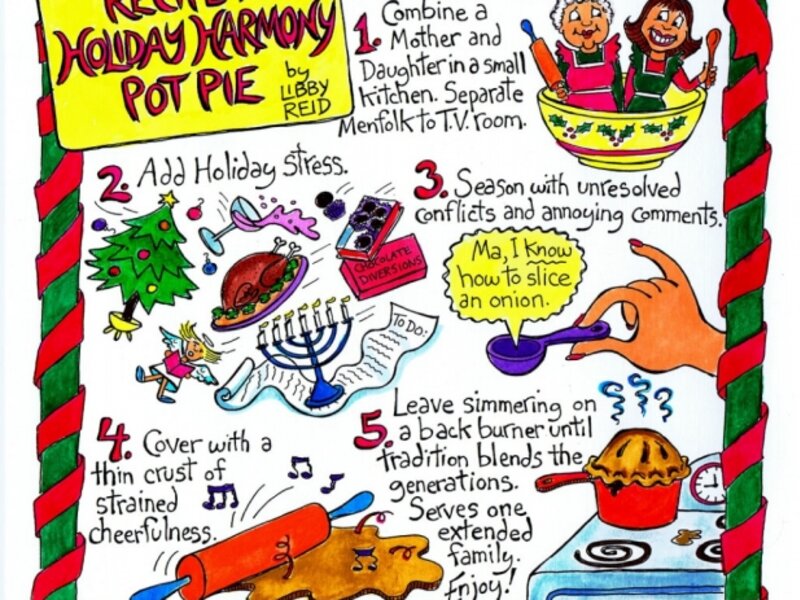 HOLIDAY HARMONY
POT PIE
by
LIBBY
REID
1. Combine a
Mother and
Daughter in a small
kitchen. Separate
Menfolk to T.V. room.
2. Add Holiday Stress.
CHOCOLATE
DIVERSIONS
To Do:
3. Season with unresolved
conflicts and annoying comments.
Ma, I know
how to slice
an onion.
4. Cover with a
thin crust of
strained
cheerfulness.
5. Leave simmering on
a back burner until
tradition blends the
generations.
Serves one
extended
family.
Enjoy!